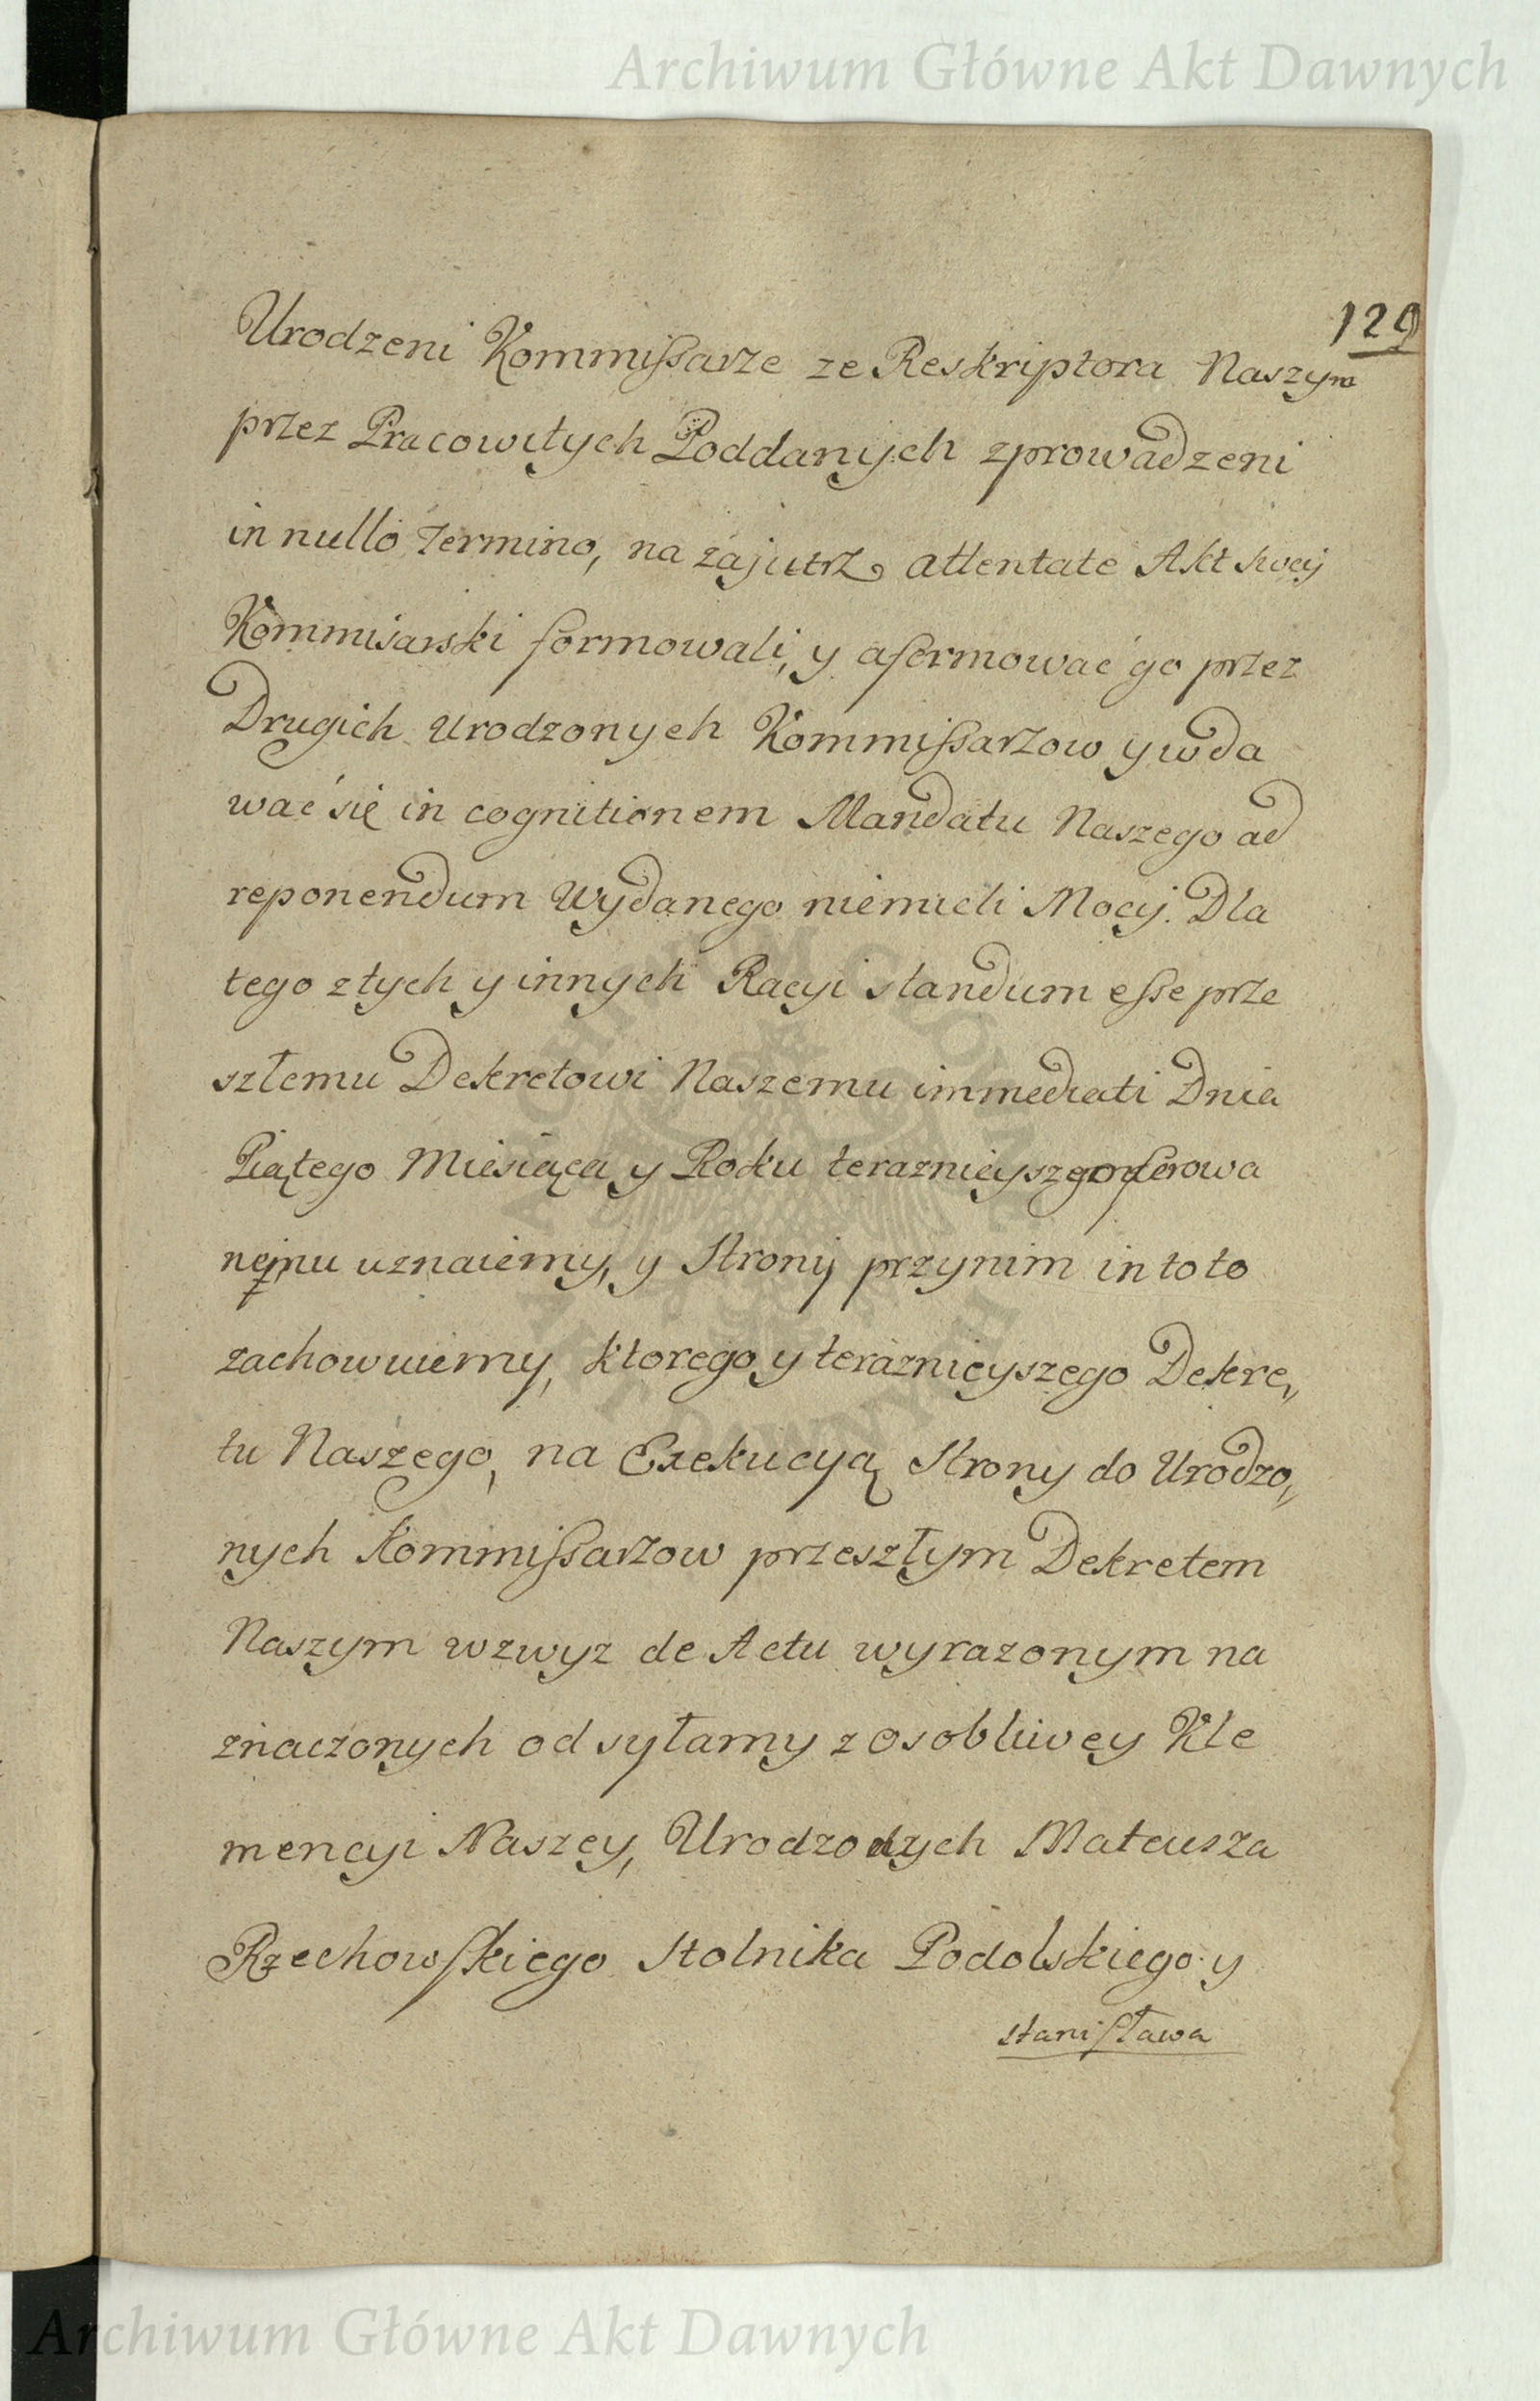 Archiwum Główne Akt Dawnych
129
Urodzeni Kommissarze ze Reskriptora Naszym
przez Pracowitych Poddanych zprowadzeni
in nullo Termino, na zajutrz attentate Akt swoij
Kommisarski formowali, y aformować go przez
Drugich Urodzonych Kommissarzow y wda
wać się in cognitionem Mandatu Naszego ad
reponendum Wydanego niemieli Mocij. Dla
tego ztych y innych Racyi standum esse prze
szłemu Dekretowi Naszemu immediati Dnia
Piątego Miesiąca y Roku teraznieyszego ferowa
nemu uznaiemy, y Stronij przynim in toto
zachowuiemy, ktorego y teraznieyszego Dekre„
tu Naszego, na Exekucyą Strony do Urodzo„
nych Kommissarzow przeszłym Dekretem
Naszym wzwyz de Actu wyrazonym na
znaczonych odsyłamy z osobliwey Kle
mencyi Naszey, Urodzonych Mateusza
Rzechowskiego Stolnika Podolskiego y
Stanisława
Archiwum Główne Akt Dawnych